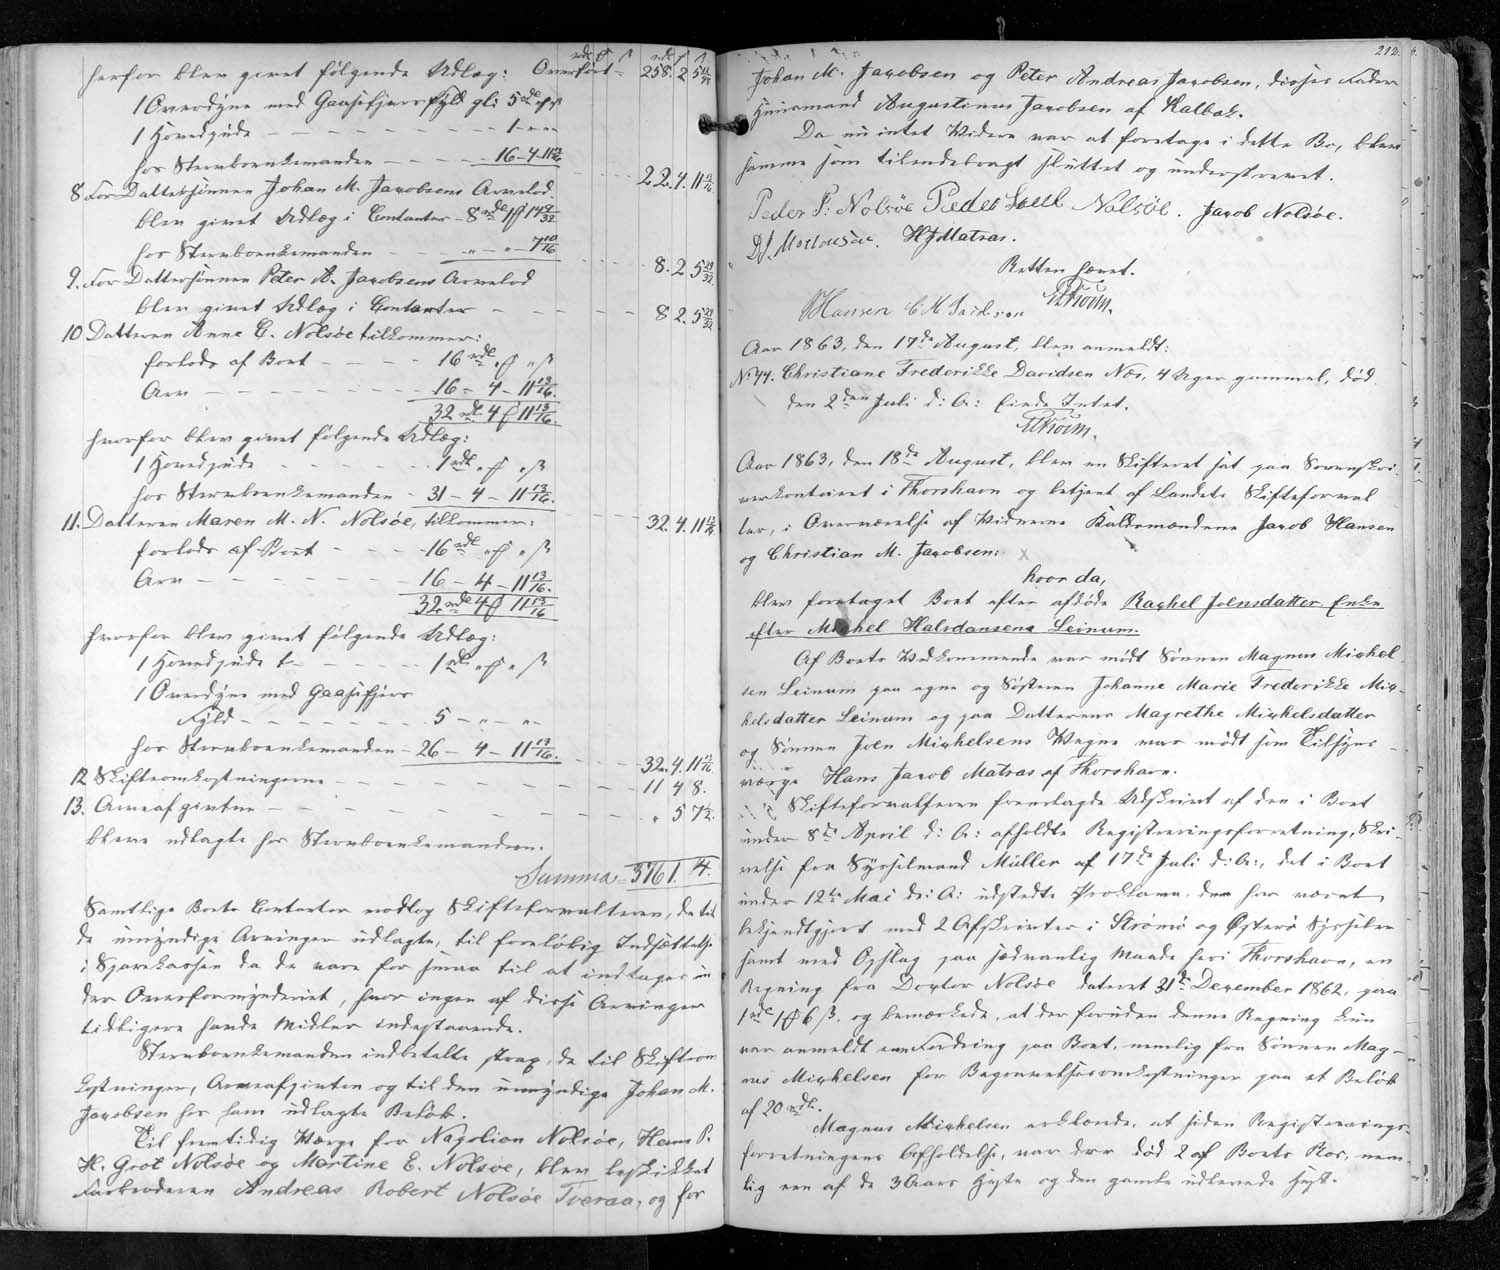 herfor blev givet følgende Udlæg: Overført – 258. 2. 5 29/32
1 Overdyne med Gaasefjers Fyld gl: 5 rdl " ß
1 Hovedpude – – – 1 – " – "
hos Stervboenkemanden – – – 16 – 4 – 11 13/16
22. 4. 11 13/16
8. For Dattersønnen Johan M. Jacobsens Arvelod
blev givet Udlæg i Contanter – 8 rdl 1 14 9/32
hos Stervboenkemanden – – " – " – 7 10/16
8. 2. 5 29/32
9. For Dattersønnen Peter A. Jacobsens Arvelod
blev givet Udlæg i Contanter – – – 8 2. 5 29/32
10 Datteren Anne E. Nolsøe tilkommer:
forlods af Boet – – – 16 rdl " "ß
Arv – – – 16 – 4 – 11 13/16.
32 rdl 4 11 13/16.
hvorfor blev givet følgende Udlæg:
1 Hovedpude – – – 1 rdl " "ß
hos Stervboenkemanden – 31 – 4 – 11 13/16.
32. 4. 11 13/16
11. Datteren Maren M. N. Nolsøe, tilkommer:
forlods af Boet – – – 16 rdl " "ß
Arv – – – 16 – 4 – 11 13/16.
32 rdl 4 11 13/16
hvorfor blev givet følgende Udlæg:
1 Hovedpude – – – 1 rdl " "ß
1 Overdyne med Gaasefjers
Fyld – – – 5 – " – "
hos Stervboenkemanden – 26 – 4 – 11 13/16.
32. 4. 11 13/16
12 Skifteomkostningerne – – – 11 4 8.
13. Arveafgiften – – – " 5 7 1/2.
bleve udlagte hos Stervboenkemanden.
Summa = 376 1. 4.
Samtlige Boets Contanter modtog Skifteforvalteren, de til
de umyndige Arvinger udlagte, til foreløbig Indsættelse
i Sparekassen da de vare for smaa til at indtages in
der Overformynderiet, hvor ingen af disse Arvinger
tidligere havde Midler indestaaende.
Stervboenkemanden indbetalte strax, de til Skifteom
kostninger, Arveafgiften og til den umyndige Johan M.
Jacobsen hos ham udlagte Beløb.
Til fremtidig Værge for Napolion Nolsøe, Hans P.
H. Grot Nolsøe og Martine E. Nolsøe, blev beskikket
Farbroderen Andreas Robert Nolsøe Tveraa, og for
212.
Johan M. Jacobsen og Peter Andreas Jacobsen, disses Fader
Huusmand Augustinus Jacobsen af Kalbak.
Da nu intet Videre var at foretage i dette Bo, blev
samme som tilendebragt sluttet og underskrevet.
Peder P: Nolsöe Peder Nolsöe. Jacob Nolsöe.
D. Mortensen. HJMatras.
Retten hævet.
Hansen C M Jacobsen
Aar 1863, den 17de August, blev anmeldt:
No 44. Christiane Frederikke Davidsen Næs, 4 Uger gammel, død
den 2den Juli d: A: Eiede Intet.
Aar 1863, den 18de August, blev en Skifteret sat paa Sorenskri-
verkontoiret i Thorshavn og betjent af Landets Skifteforval
ter, i Overværelse af Vidnerne Kaldsmændene Jacob Hansen
og Christian M. Jacobsen:
hvor da,
blev foretaget Boet efter afdøde Rachel Joensdatter Enke
efter Michel Halvdansens Leinum.
Af Boets Vedkommende var mødt Sønnen Magnus Michel
sen Leinum paa egne og Søsteren Johanne Marie Frederikke Mic-
helsdatter Leinum og paa Datterens Magrethe Michelsdatter
og Sønnen Joen Michelsens Vegne var mødt som Tilsyns-
værge Hans Jacob Matras af Thorshavn.
Skifteforvalteren fremlagde Udskrivt af den i Boet
under 8de April d: A: afholdte Registreringsforretning, Skri-
velse fra Sysselmand Müller af 17de Juli d: A:, det i Boet
under 12te Mai d: A: udstedte Proklama, der har været
bekjendtgjort med 2 Afskrivter i Strømø og Østerø Sysseler
samt med Opslag paa sædvanlig Maade her i Thorshavn, en
Regning fra Doctor Nolsøe dateret 31te December 1862, paa
1 rdl 1 6 ß. og bemærkede, at der foruden denne Regning kun
var anmeldt een Fordring paa Boet, nemlig fra Sønnen Mag-
nus Michelsen for Begravelsesomkostninger paa et Beløb
af 20 rdl.
Magnus Michelsen erklærede, at siden Registrerings-
forretningens Afholdelse, var der død 2 af Boets Kør, nem-
lig een af de 3 Aars Heste og den gamle udlevede Hest.